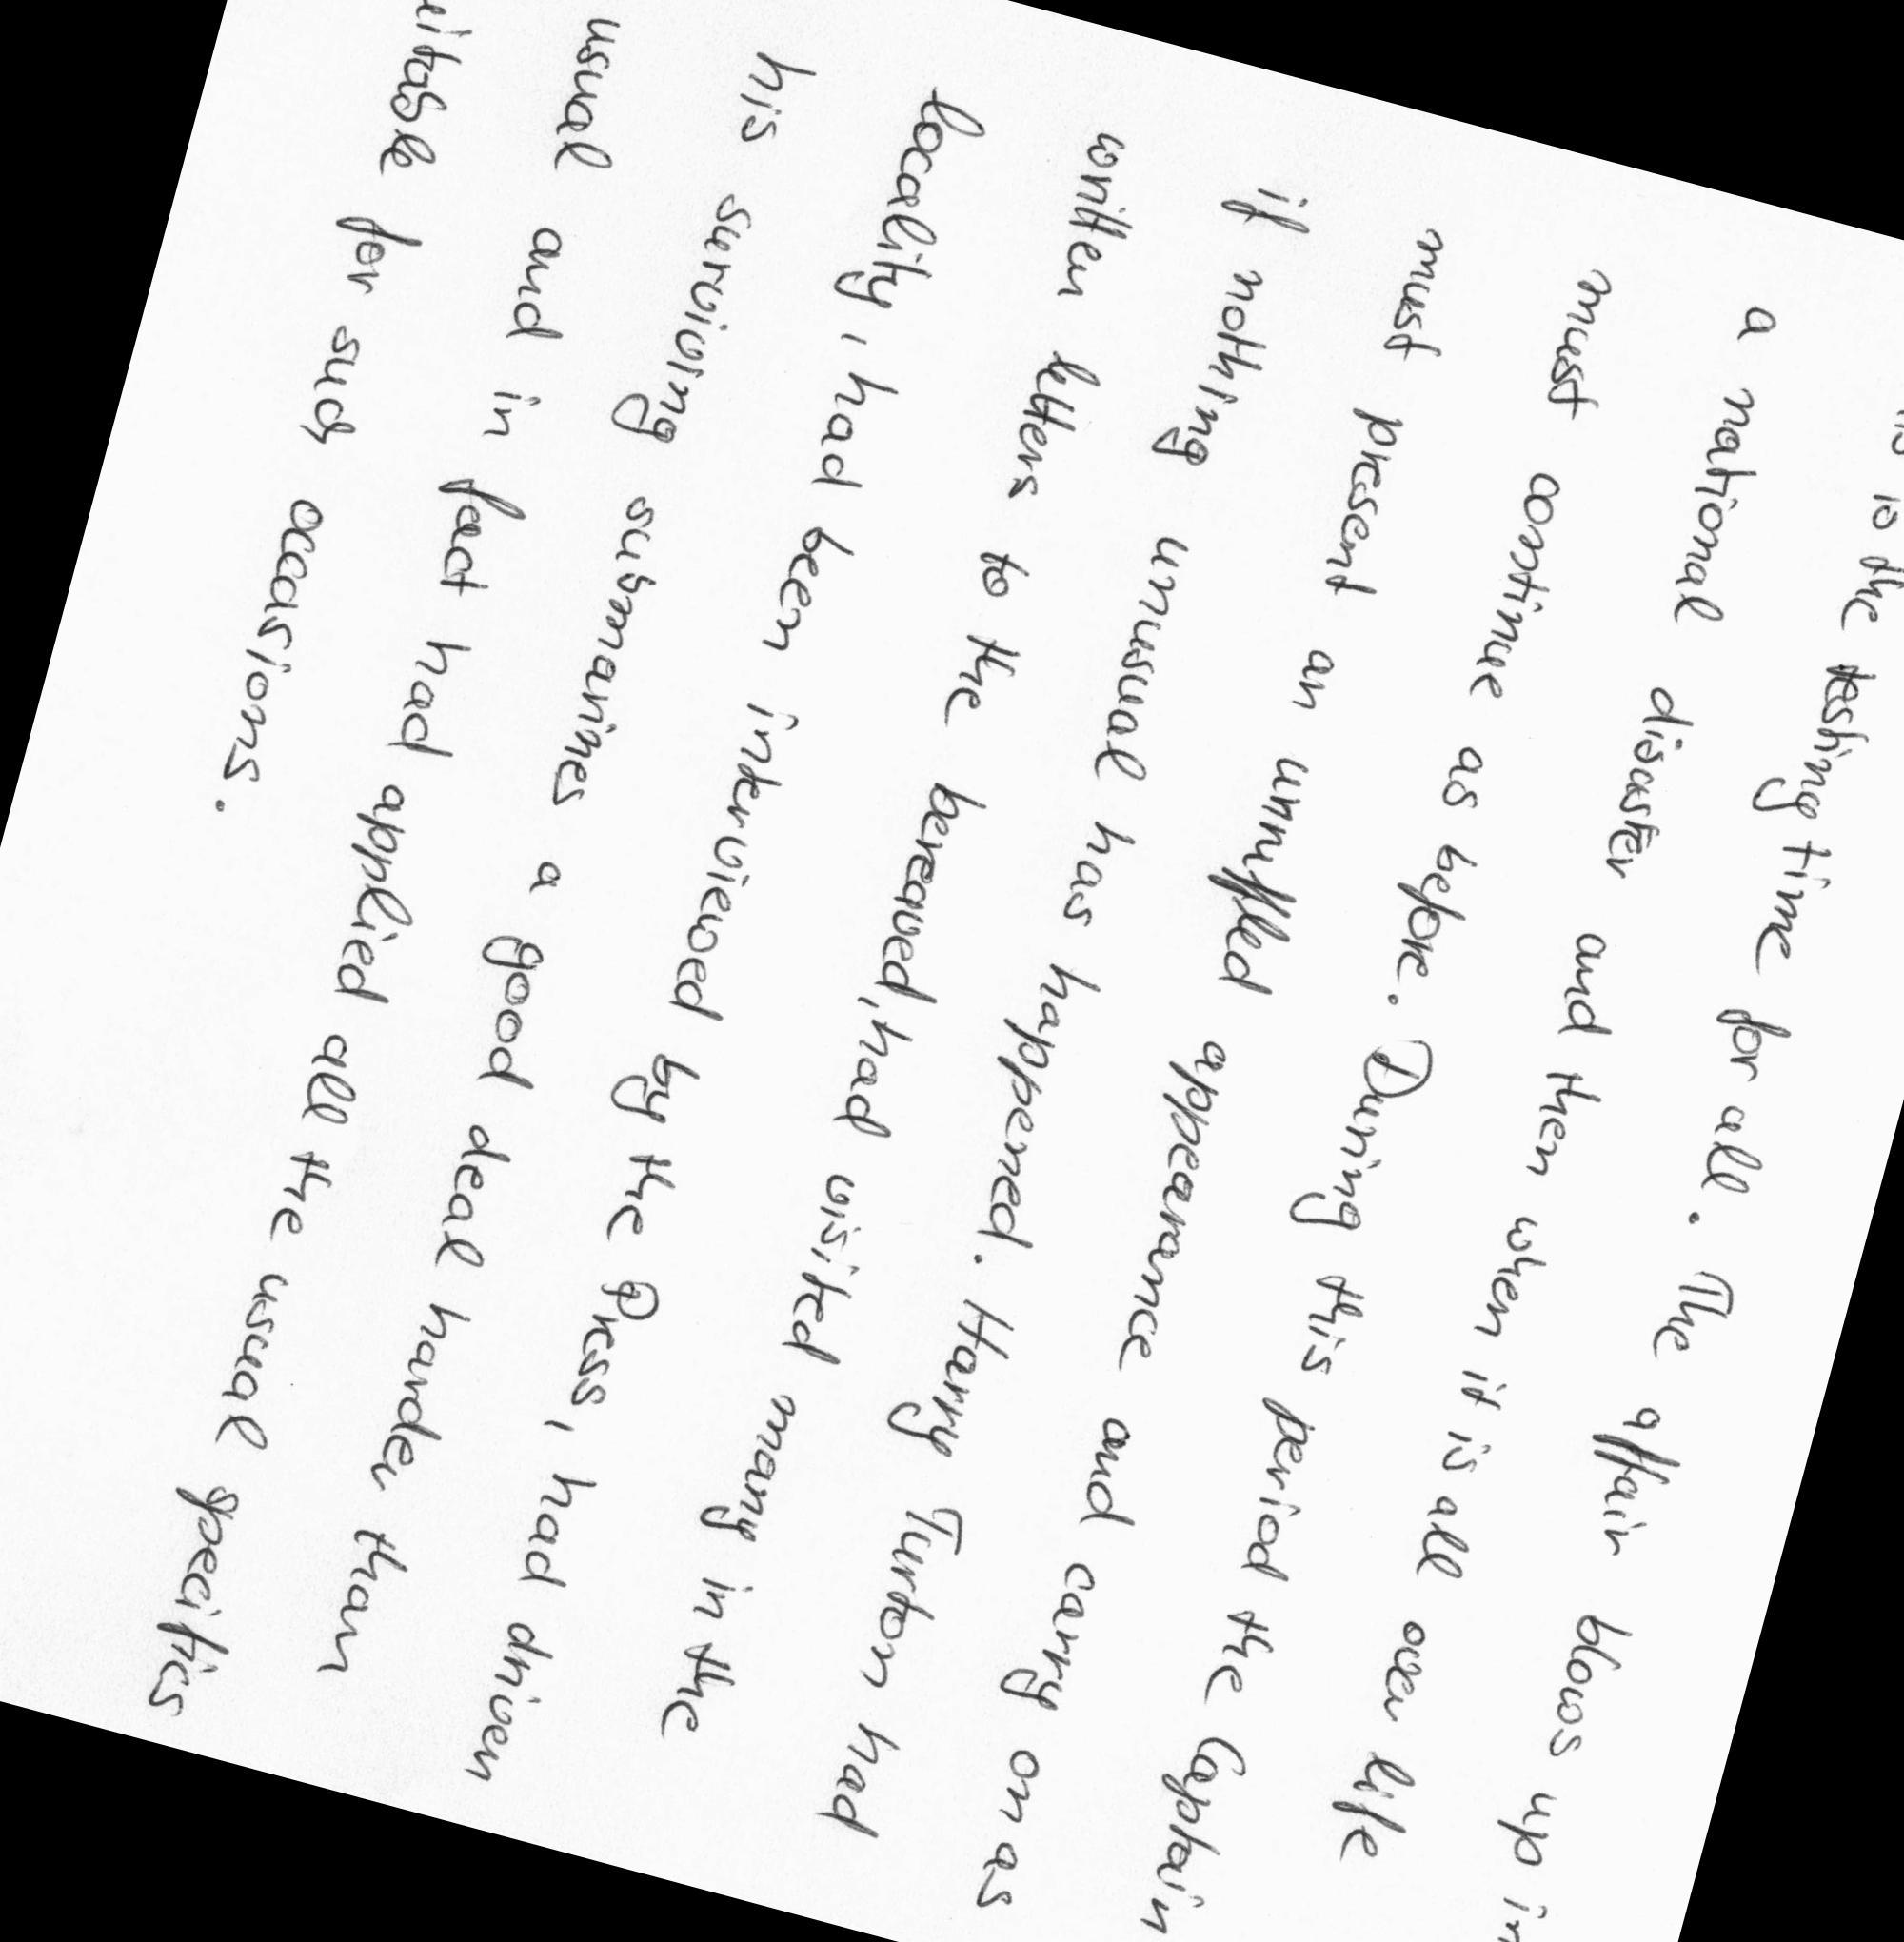 is the testing time for all. The affair blows up in
a national disaster and then when it is all over life
must continue as before. During this period the Captain
must present an unruffled appearance and carry on as
if nothing unusual has happened. Harry Turton had
written letters to the bereaved, had visited many in the
locality, had been interviewed by the Press, had driven
his surviving submarines a good deal harder than
usual and in fact had applied all the usual specifics
for such occasions.